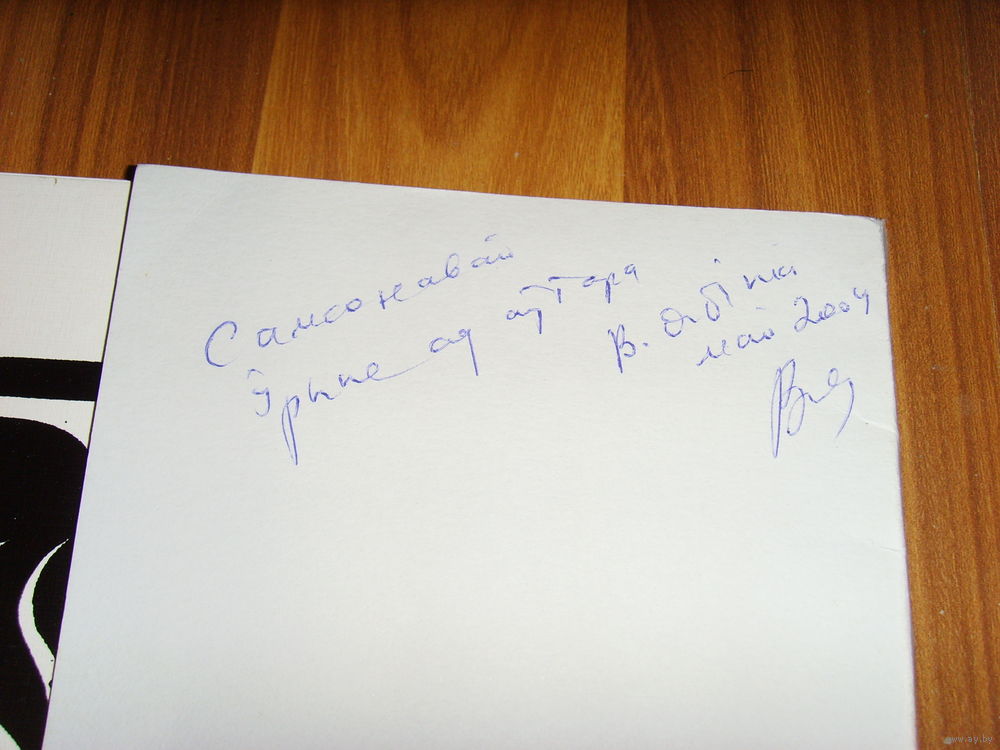 Самсонавай
Ірыне ад аўтара
В.
май 2004
www.ay.by